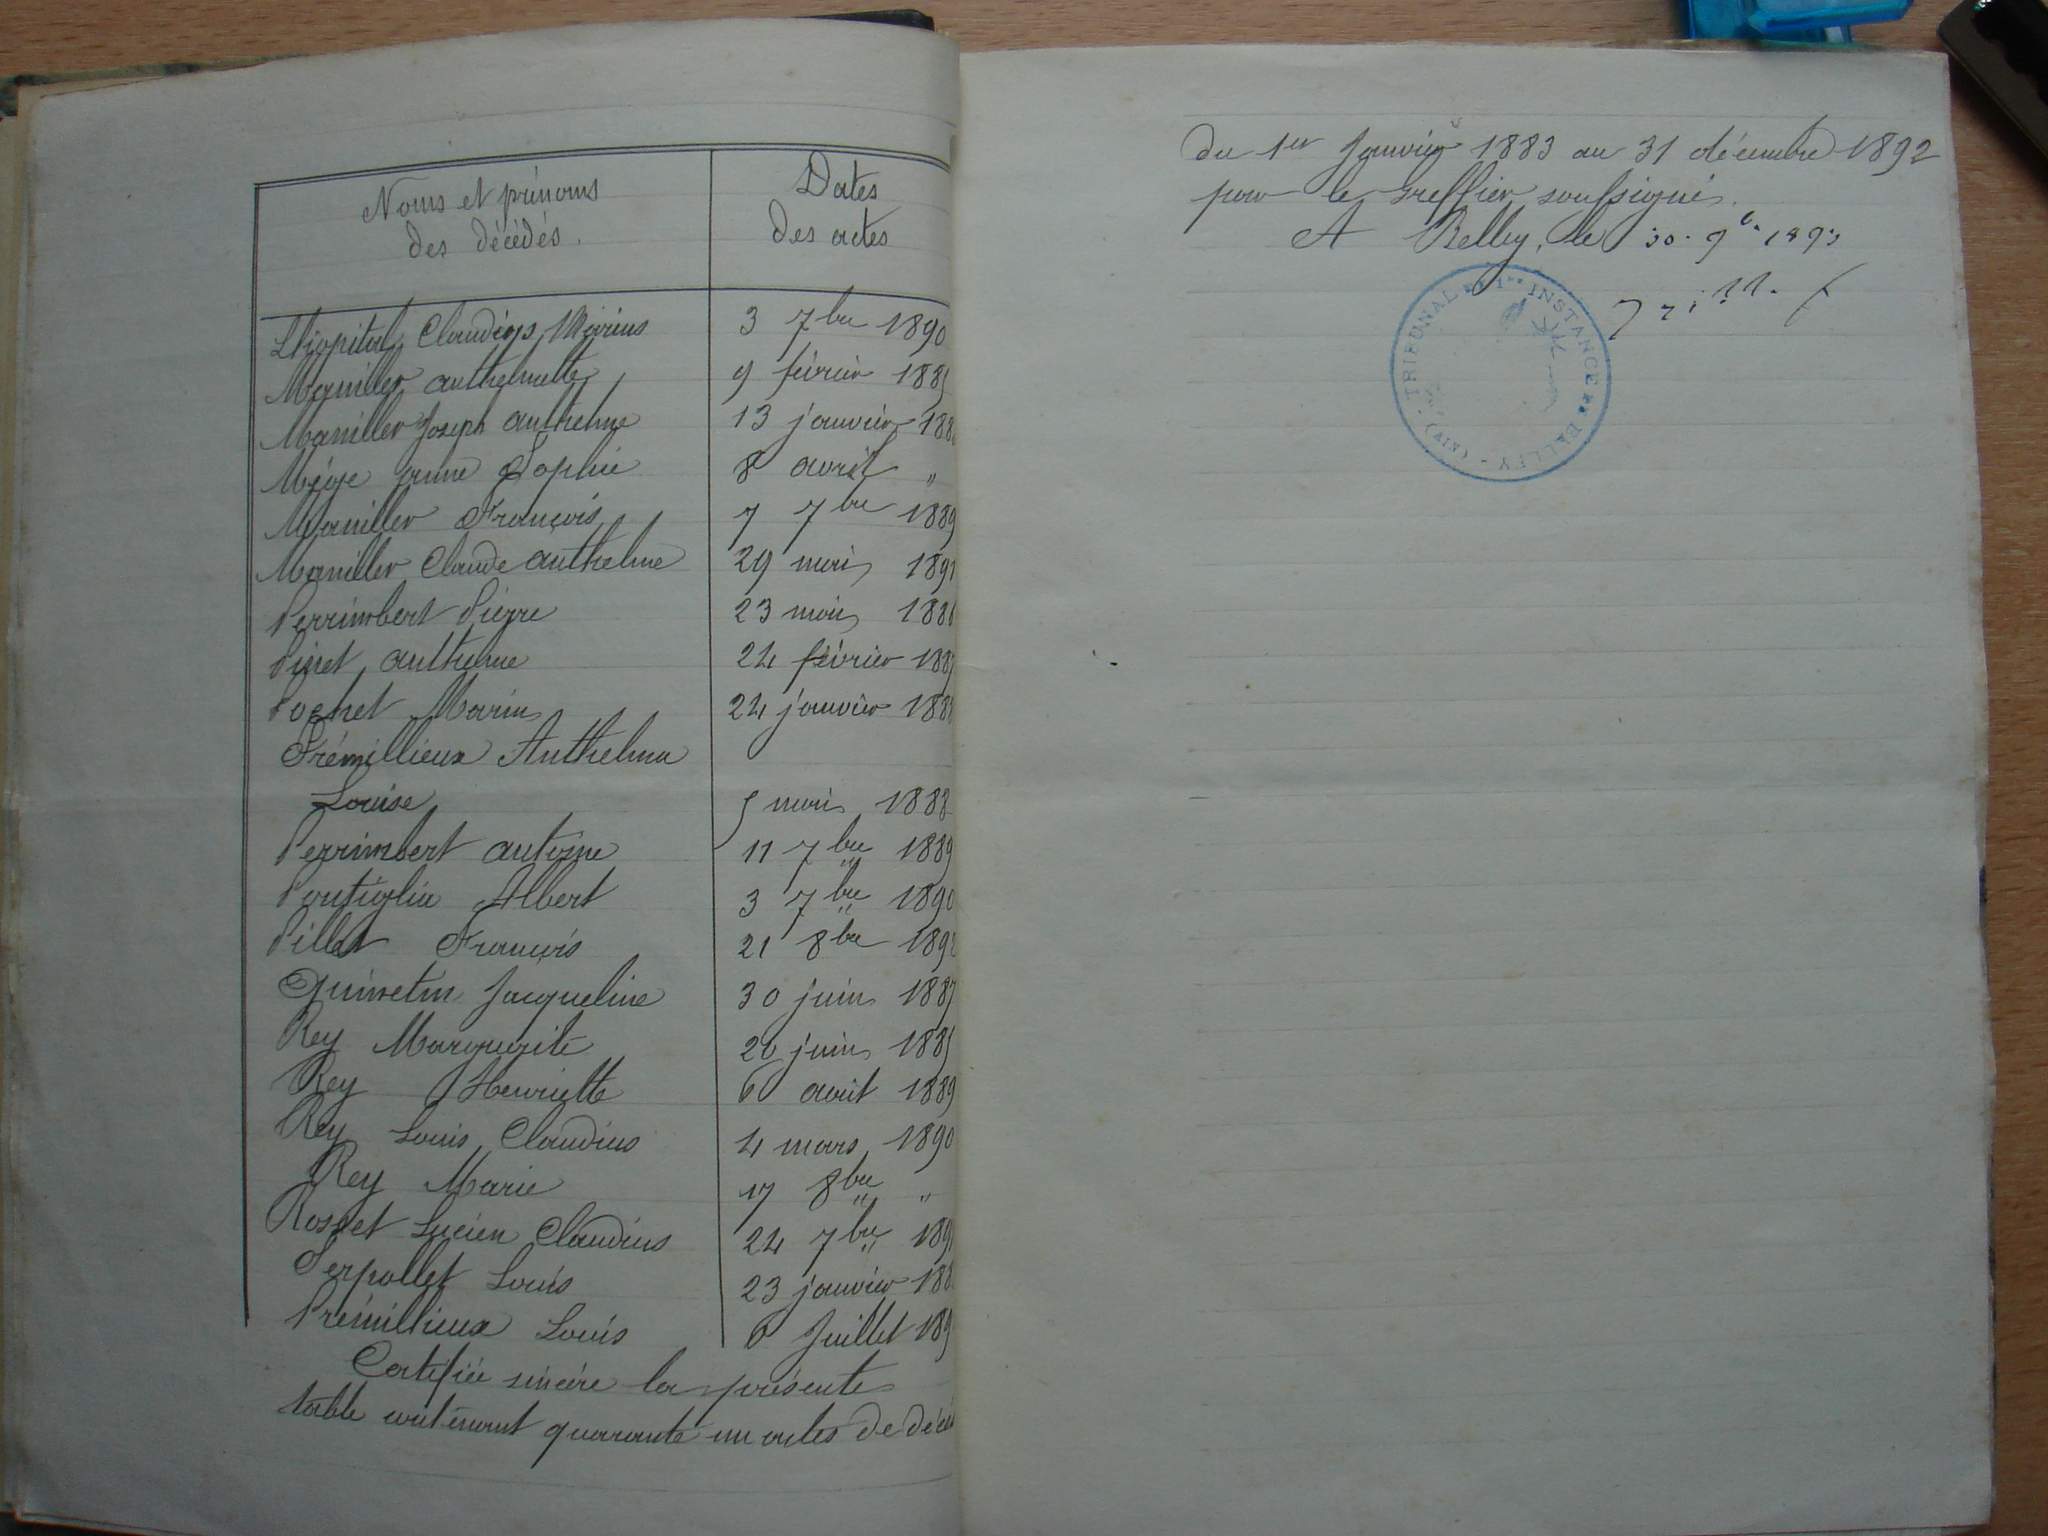 Noms et prénoms
des décédés.
Dates
des actes
Lhôpital Claudius Marius 3 7bre 1890
Maniller anthelmette 9 février 1885
Maniller Joseph anthelme 13 janvier 188
Mége anne Sophie 8 avril "
Maniller François 7 7bre 1889
Maniller Claude anthelme 29 mai 1891
Perrimbert Pierre 23 mai 188
Pinet anthelme 24 février 1887
Pochet Marin 24 janvier 188
Prémillieux Anthelma
Louise 5 mai 1888
Perrimbert antoine 11 7bre 1889
Portiglia Albert 3 7bre 1890
Pillet François 21 8bre 1892
Quinetin Jacqueline 30 juin 1887
Rey Marguerite 20 juin 1885
Rey Henriette 6 avril 1889
Rey Louis Claudius 4 mars 1890
Rey Marie 17 8bre "
Rosset Lucien Claudius 24 7bre 189
Serpollet Louis 23 janvier 188
Prémillieux Louis 6 Juillet 189
Certifiée sincère la présente
table contenant quarante un actes de décès
du 1er Janvier 1883 au 31 décembre 1892
par le Greffier soussigné.
A Belley, le 30 9b. 1893
TRIBUNAL DE 1re INSTANCE DE BELLEY (AIN)